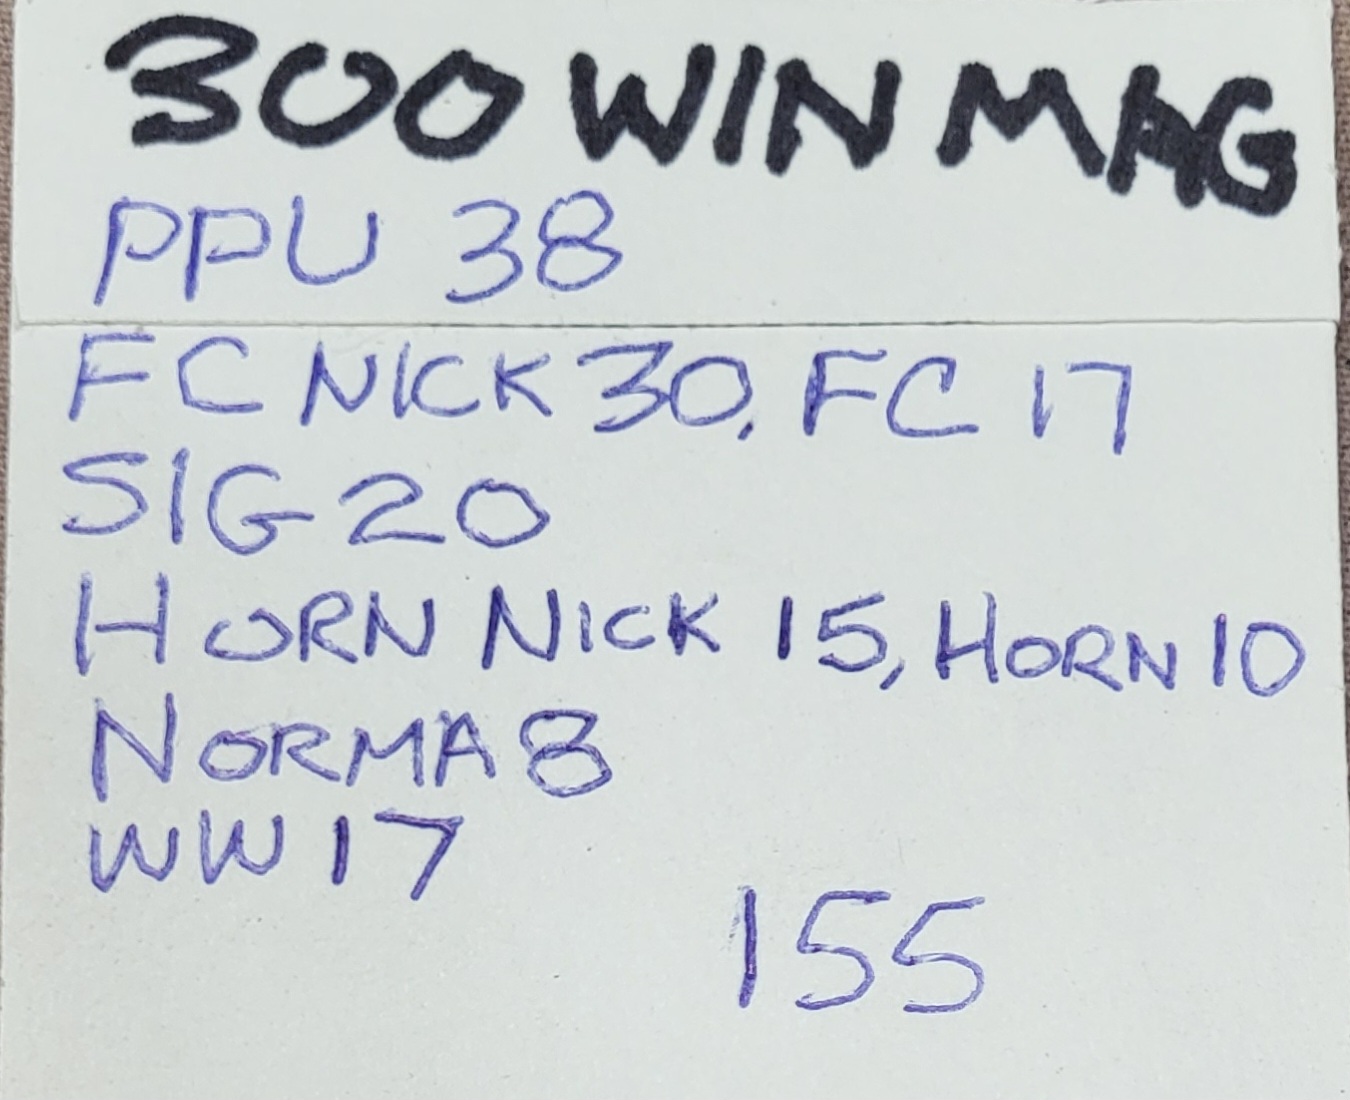 300 WIN MAG
PPU 38
FC NICK 30, FC 17
SIG 20
HORN NICK 15, HORN 10
NORMA 8
WW 17
155